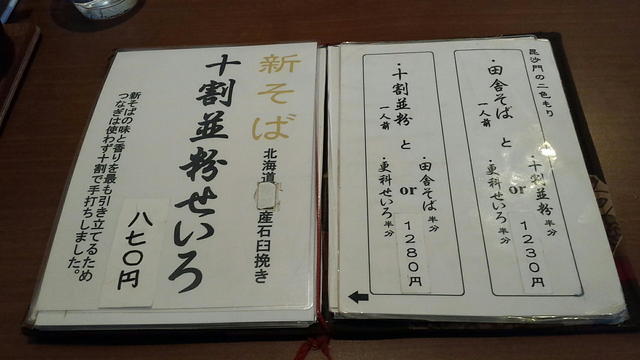 毘沙門の二色もり
・田舎そば 一人前 と ・十割並粉 半分 or ・更科せいろ 半分 1230円
・十割並粉 一人前 と ・田舎そば 半分 or ・更科せいろ 半分 1280円
新そば 北海道 産石臼挽き
十割並粉せいろ
新そばの味と香りを最も引き立てるため
つなぎは使わず十割で手打ちしました。
八七〇円